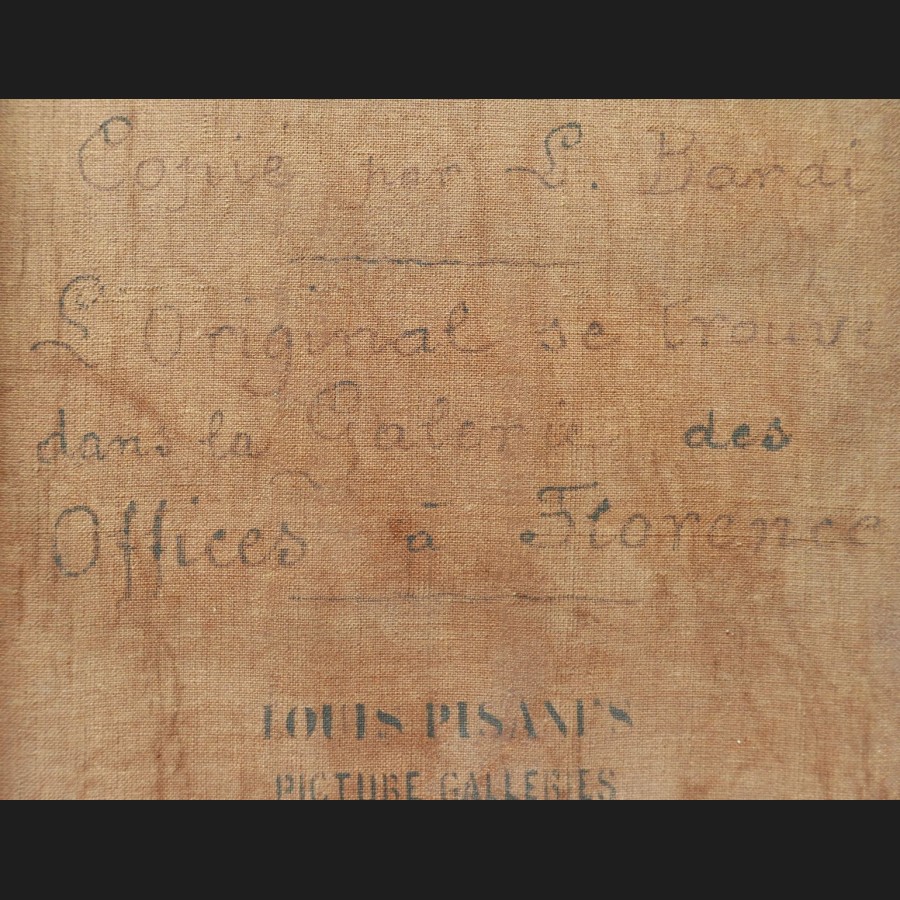 Copié par L. Bardi
L'Original se trouve
dans la Galerie des
Offices à Florence
LOUIS PISANI'S
PICTURE GALLERIES